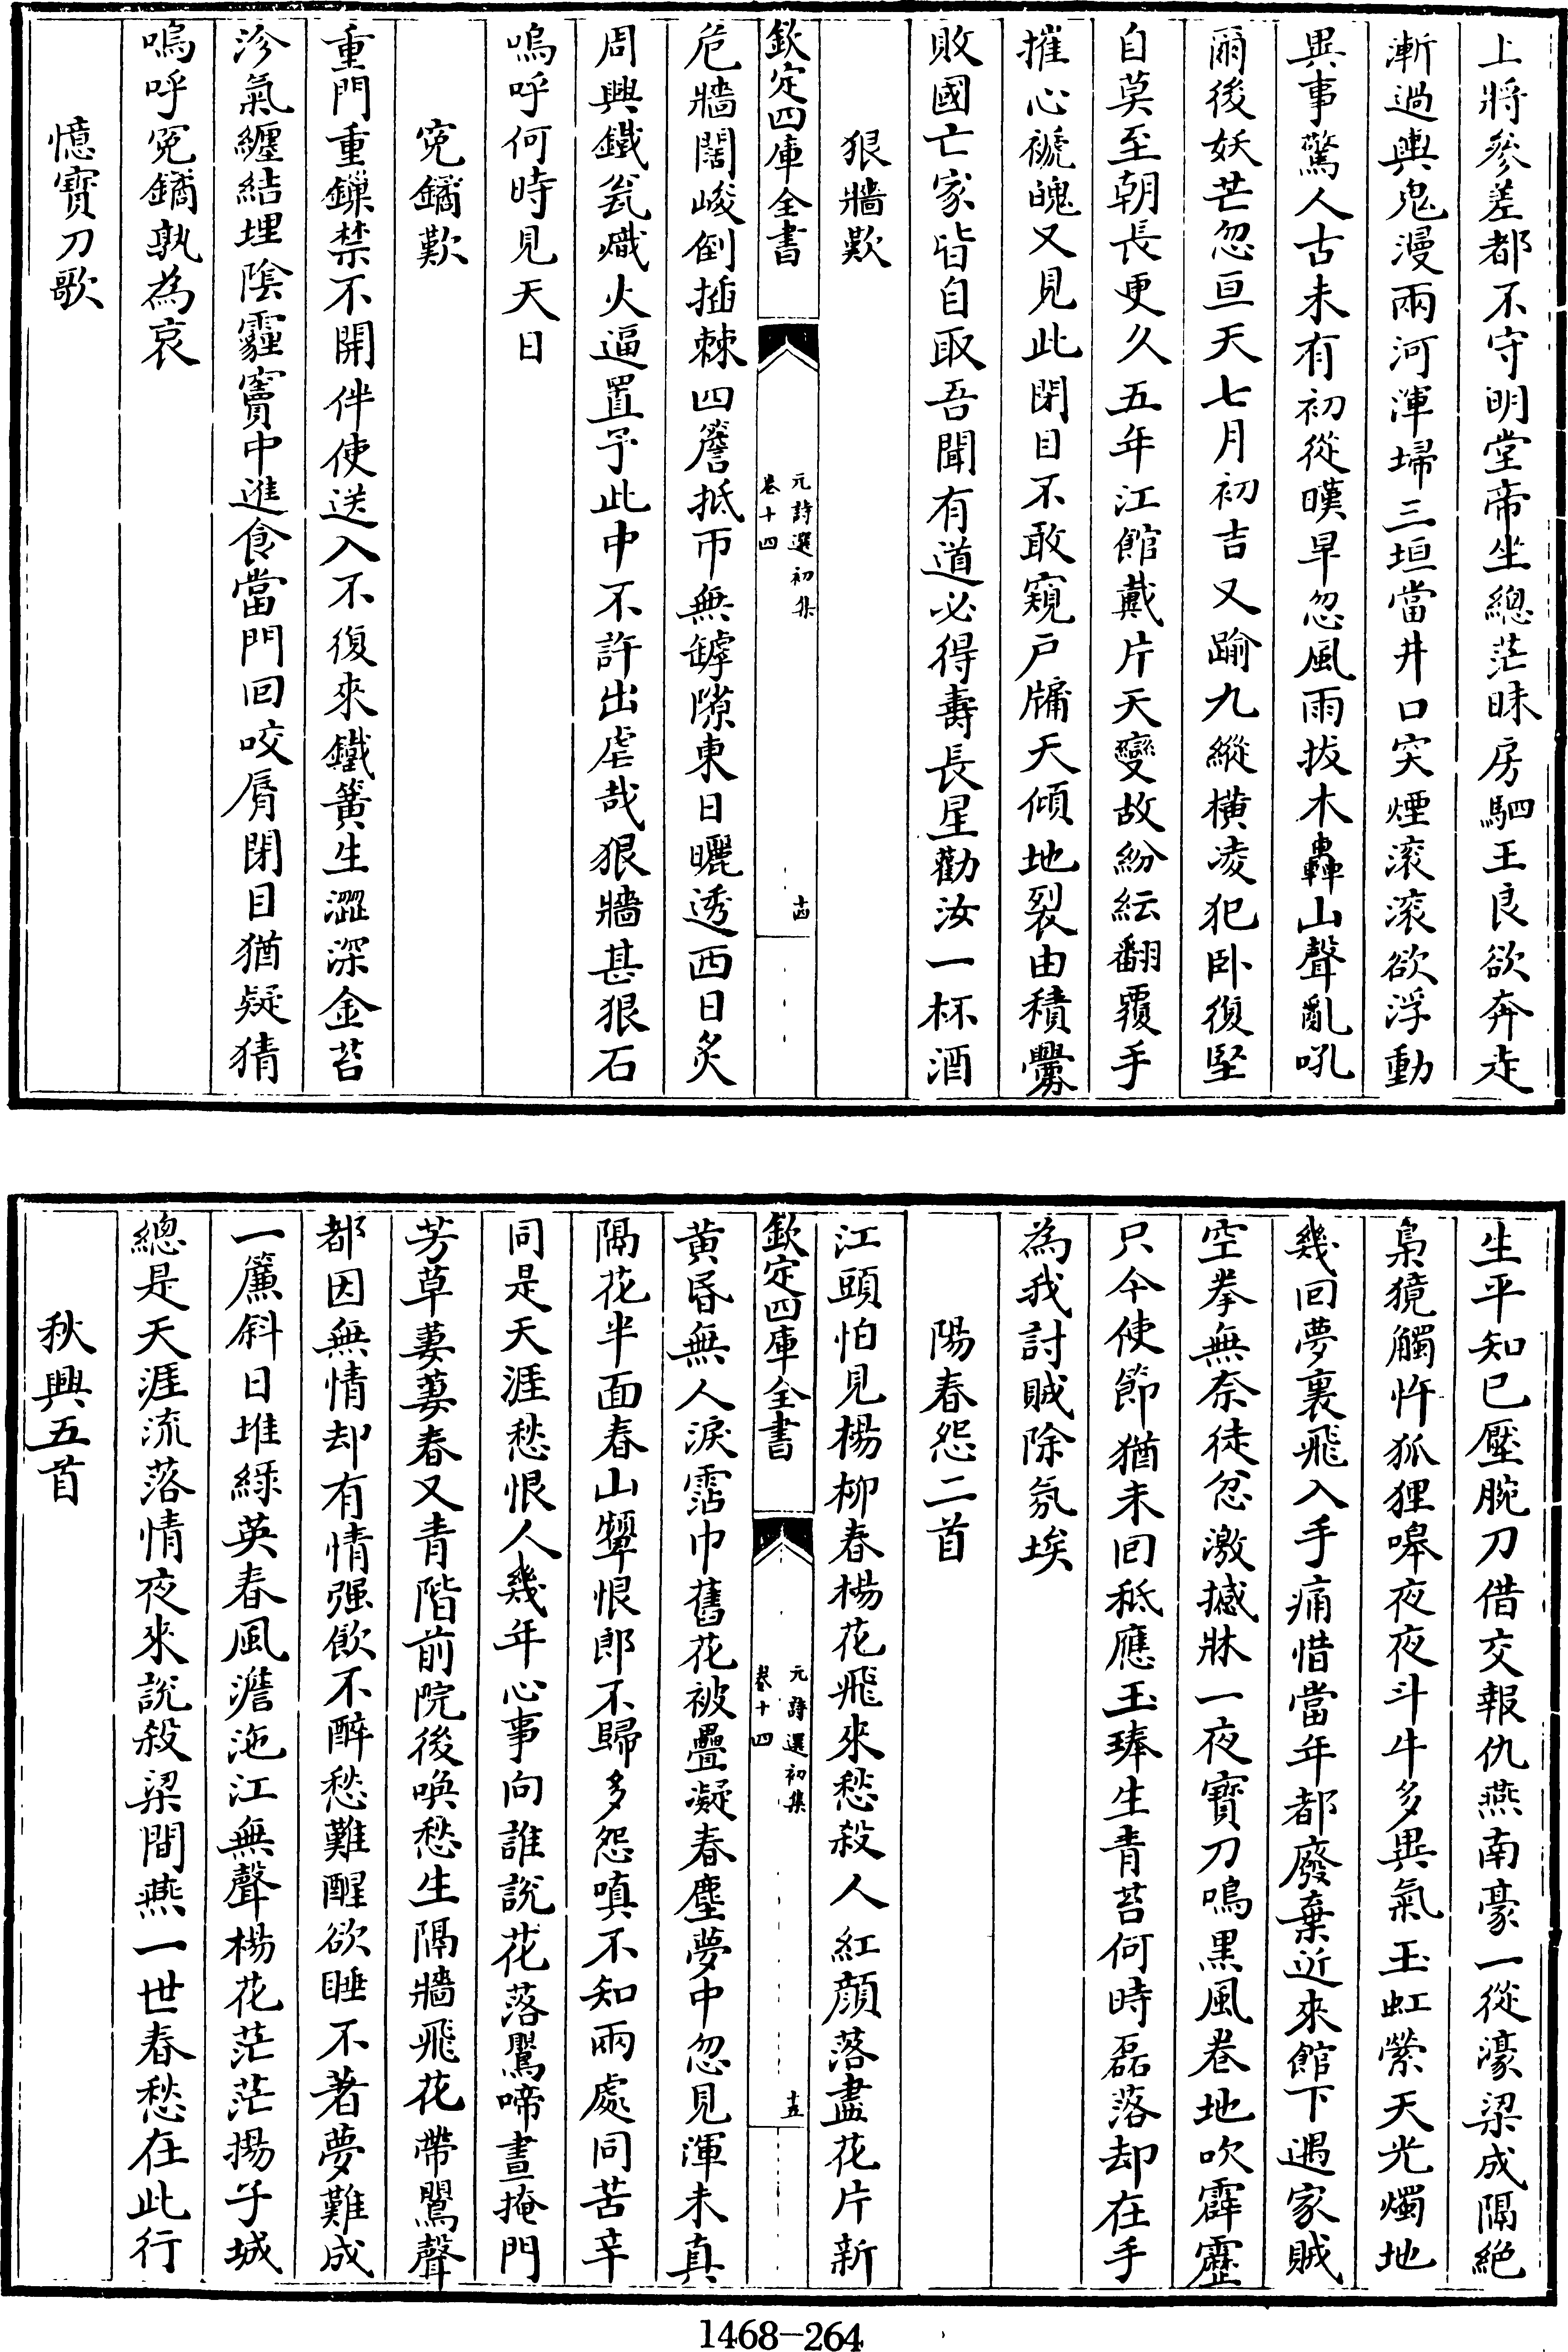 上將參差都不守明堂帝坐總茫昧房駟王良欲奔走
漸過輿鬼漫兩河渾埽三垣當井口突煙滚滚欲浮動
異事驚人古未有初從暵旱忽風雨拔木轟山聲亂吼
爾後妖芒忽亘天七月初吉又踰九縱橫凌犯卧復堅
自莫至朝長更久五年江館戴片天變故紛紜翻覆手
摧心褫魄又見此閉目不敢窺戸牖天傾地裂由積釁
敗國亡家皆自取吾聞有道必得壽長星勸汝一杯酒
狠牆歎
欽定四庫全書
元詩選初集
卷十四
十四
危牆闊峻倒插棘四簷抵帀無罅隙東日曬透西日炙
周興鐵瓮熾火逼置予此中不許出虐哉狠牆甚狠石
嗚呼何時見天日
寃鐍歎
重門重鏁禁不開伴使送入不復來鐵簧生澀深金苔
沴氣纏結埋陰霾竇中進食當門回咬脣閉目猶疑猜
嗚呼寃鐍孰為哀
憶寶刀歌
生平知已壓腕刀借交報仇燕南豪一從濠梁成隔絶
梟獍觸忤狐狸嘷夜夜斗牛多異氣玉虹縈天光燭地
幾回夢裏飛入手痛惜當年都廢棄近來館下遇家賊
空拳無奈徒忿激撼牀一夜寶刀鳴黒風卷地吹霹靂
只今使節猶未回秪應玉琫生青苔何時磊落却在手
為我討賊除氛埃
陽春怨二首
江頭怕見楊柳春楊花飛來愁殺人紅顔落盡花片新
欽定四庫全書
元詩選初集
卷十四
十五
黄昏無人淚霑巾舊花被疊凝春塵夢中忽見渾未真
隔花半面春山顰恨郎不歸多怨嗔不知兩處同苦辛
同是天涯愁恨人幾年心事向誰說花落鸎啼晝掩門
芳草萋萋春又青階前院後喚愁生隔牆飛花帶鸎聲
都因無情却有情强飲不醉愁難醒欲睡不著夢難成
一簾斜日堆綠英春風澹沲江無聲楊花茫茫揚子城
總是天涯流落情夜來說殺梁間燕一世春愁在此行
秋興五首
1468-264